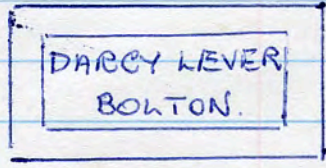 DARCY LEVER
BOLTON.